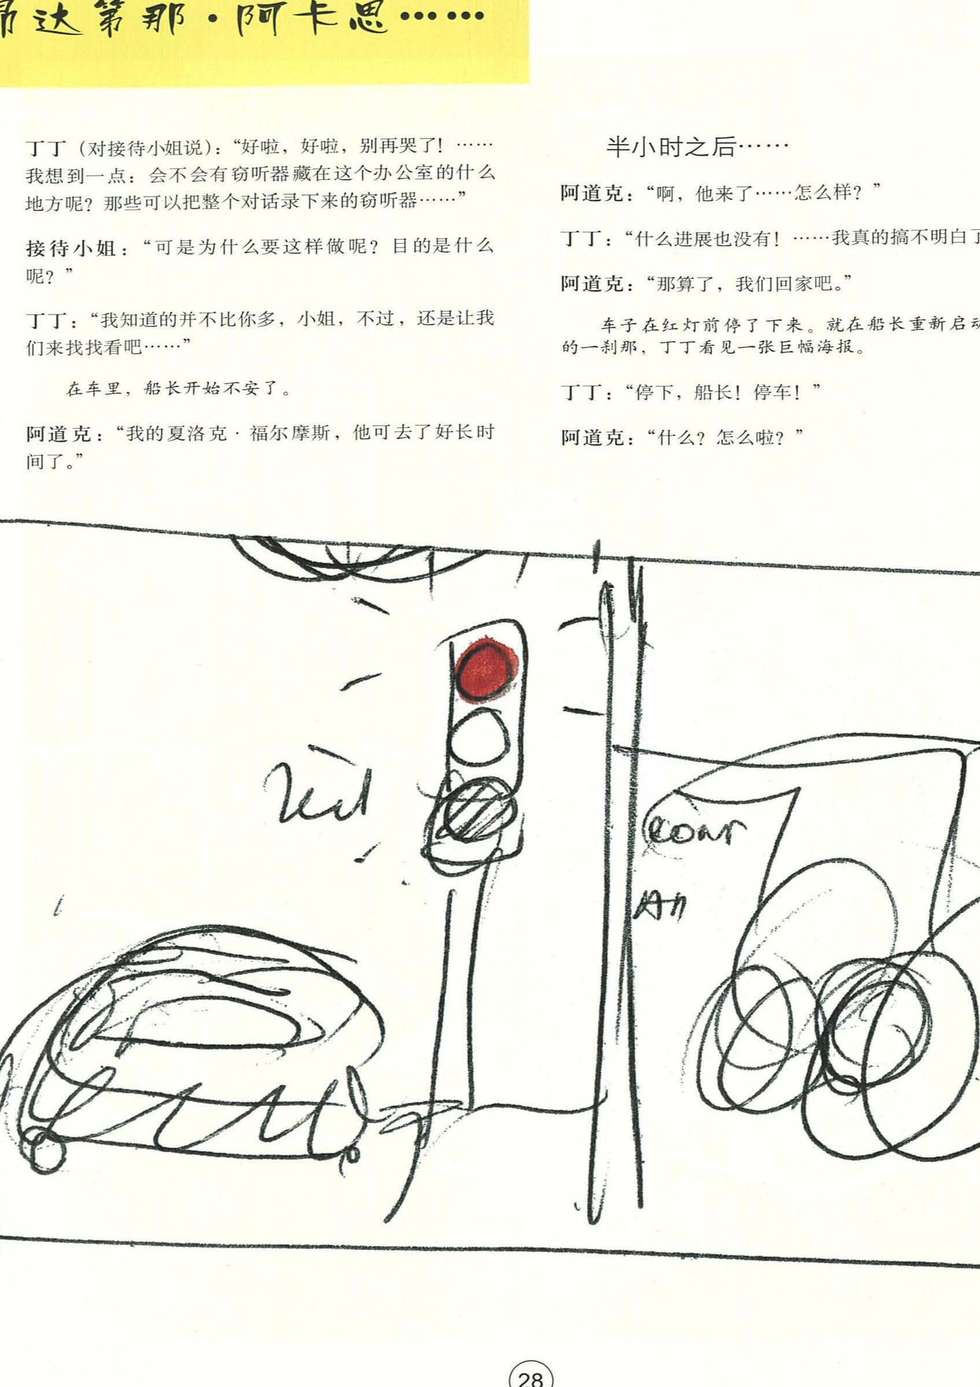 昂达第那·阿卡思……
丁丁（对接待小姐说）：“好啦，好啦，别再哭了！……
我想到一点：会不会有窃听器藏在这个办公室的什么
地方呢？那些可以把整个对话录下来的窃听器……”
接待小姐：“可是为什么要这样做呢？目的是什么
呢？”
丁丁：“我知道的并不比你多，小姐，不过，还是让我
们来找找看吧……”
在车里，船长开始不安了。
阿道克：“我的夏洛克·福尔摩斯，他可去了好长时
间了。”
半小时之后……
阿道克：“啊，他来了……怎么样？”
丁丁：“什么进展也没有！……我真的搞不明白了
阿道克：“那算了，我们回家吧。”
车子在红灯前停了下来。就在船长重新启动
的一刹那，丁丁看见一张巨幅海报。
丁丁：“停下，船长！停车！”
阿道克：“什么？怎么啦？”
28